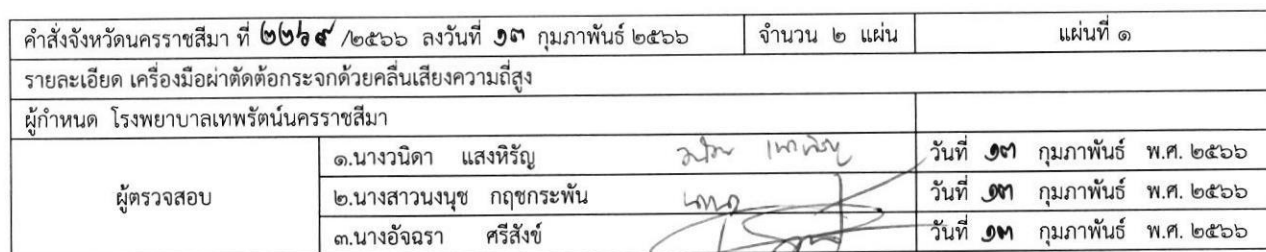 คำสั่งจังหวัดนครราชสีมา ที่ ๒๒๖๙ /๒๕๖๖ ลงวันที่ ๑๓ กุมภาพันธ์ ๒๕๖๖ จำนวน ๒ แผ่น แผ่นที่ ๑
รายละเอียด เครื่องมือผ่าตัดต้อกระจกด้วยคลื่นเสียงความถี่สูง
ผู้กำหนด โรงพยาบาลเทพรัตน์นครราชสีมา
ผู้ตรวจสอบ
๑.นางวนิดา แสงหิรัญ วันที่ ๑๓ กุมภาพันธ์ พ.ศ. ๒๕๖๖
๒.นางสาวนงนุช กฤชกระพัน วันที่ ๑๓ กุมภาพันธ์ พ.ศ. ๒๕๖๖
๓.นางอัจฉรา ศรีสังข์ วันที่ ๑๓ กุมภาพันธ์ พ.ศ. ๒๕๖๖